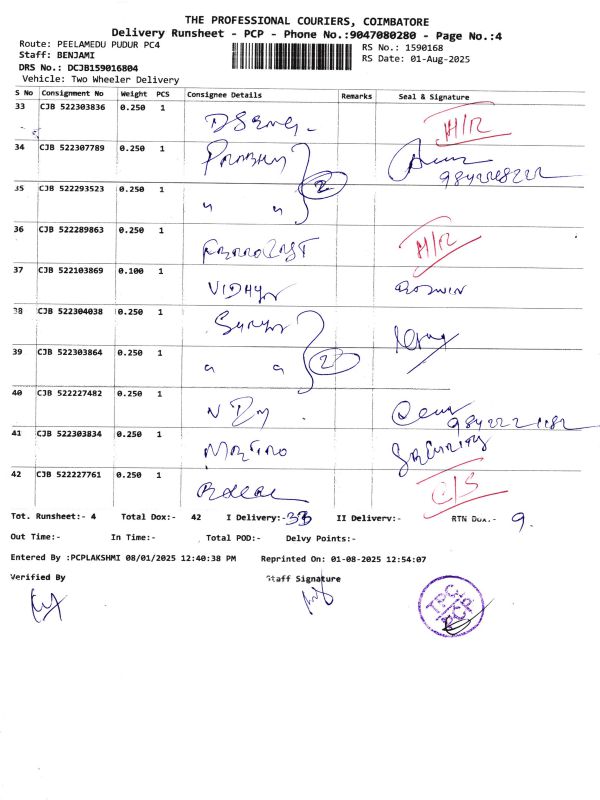 THE PROFESSIONAL COURIERS, COIMBATORE
Delivery Runsheet - PCP - Phone No.:9047080280 - Page No.:4
Route: PEELAMEDU PUDUR PC4
RS No.: 1590168
Staff: BENJAMI
RS Date: 01-Aug-2025
DRS No.: DCJB159016804
Vehicle: Two Wheeler Delivery
S No Consignment No Weight PCS Consignee Details Remarks Seal & Signature
33 CJB 522303836 0.250 1 H/R
34 CJB 522307789 0.250 1 Prabhu 2
9842228222
35 CJB 522293523 0.250 1 " "
36 CJB 522289863 0.250 1 H/R
37 CJB 522103869 0.100 1 VIDHYA
38 CJB 522304038 0.250 1 Surya 2
39 CJB 522303864 0.250 1 " "
40 CJB 522227482 0.250 1
41 CJB 522303834 0.250 1 Security
42 CJB 522227761 0.250 1 C/S
Tot. Runsheet:- 4 Total Dox:- 42 I Delivery:- 33 II Delivery:- RTN Dox.- 9.
Out Time:- In Time:- Total POD:- Delvy Points:-
Entered By :PCPLAKSHMI 08/01/2025 12:40:38 PM Reprinted On: 01-08-2025 12:54:07
Verified By Staff Signature